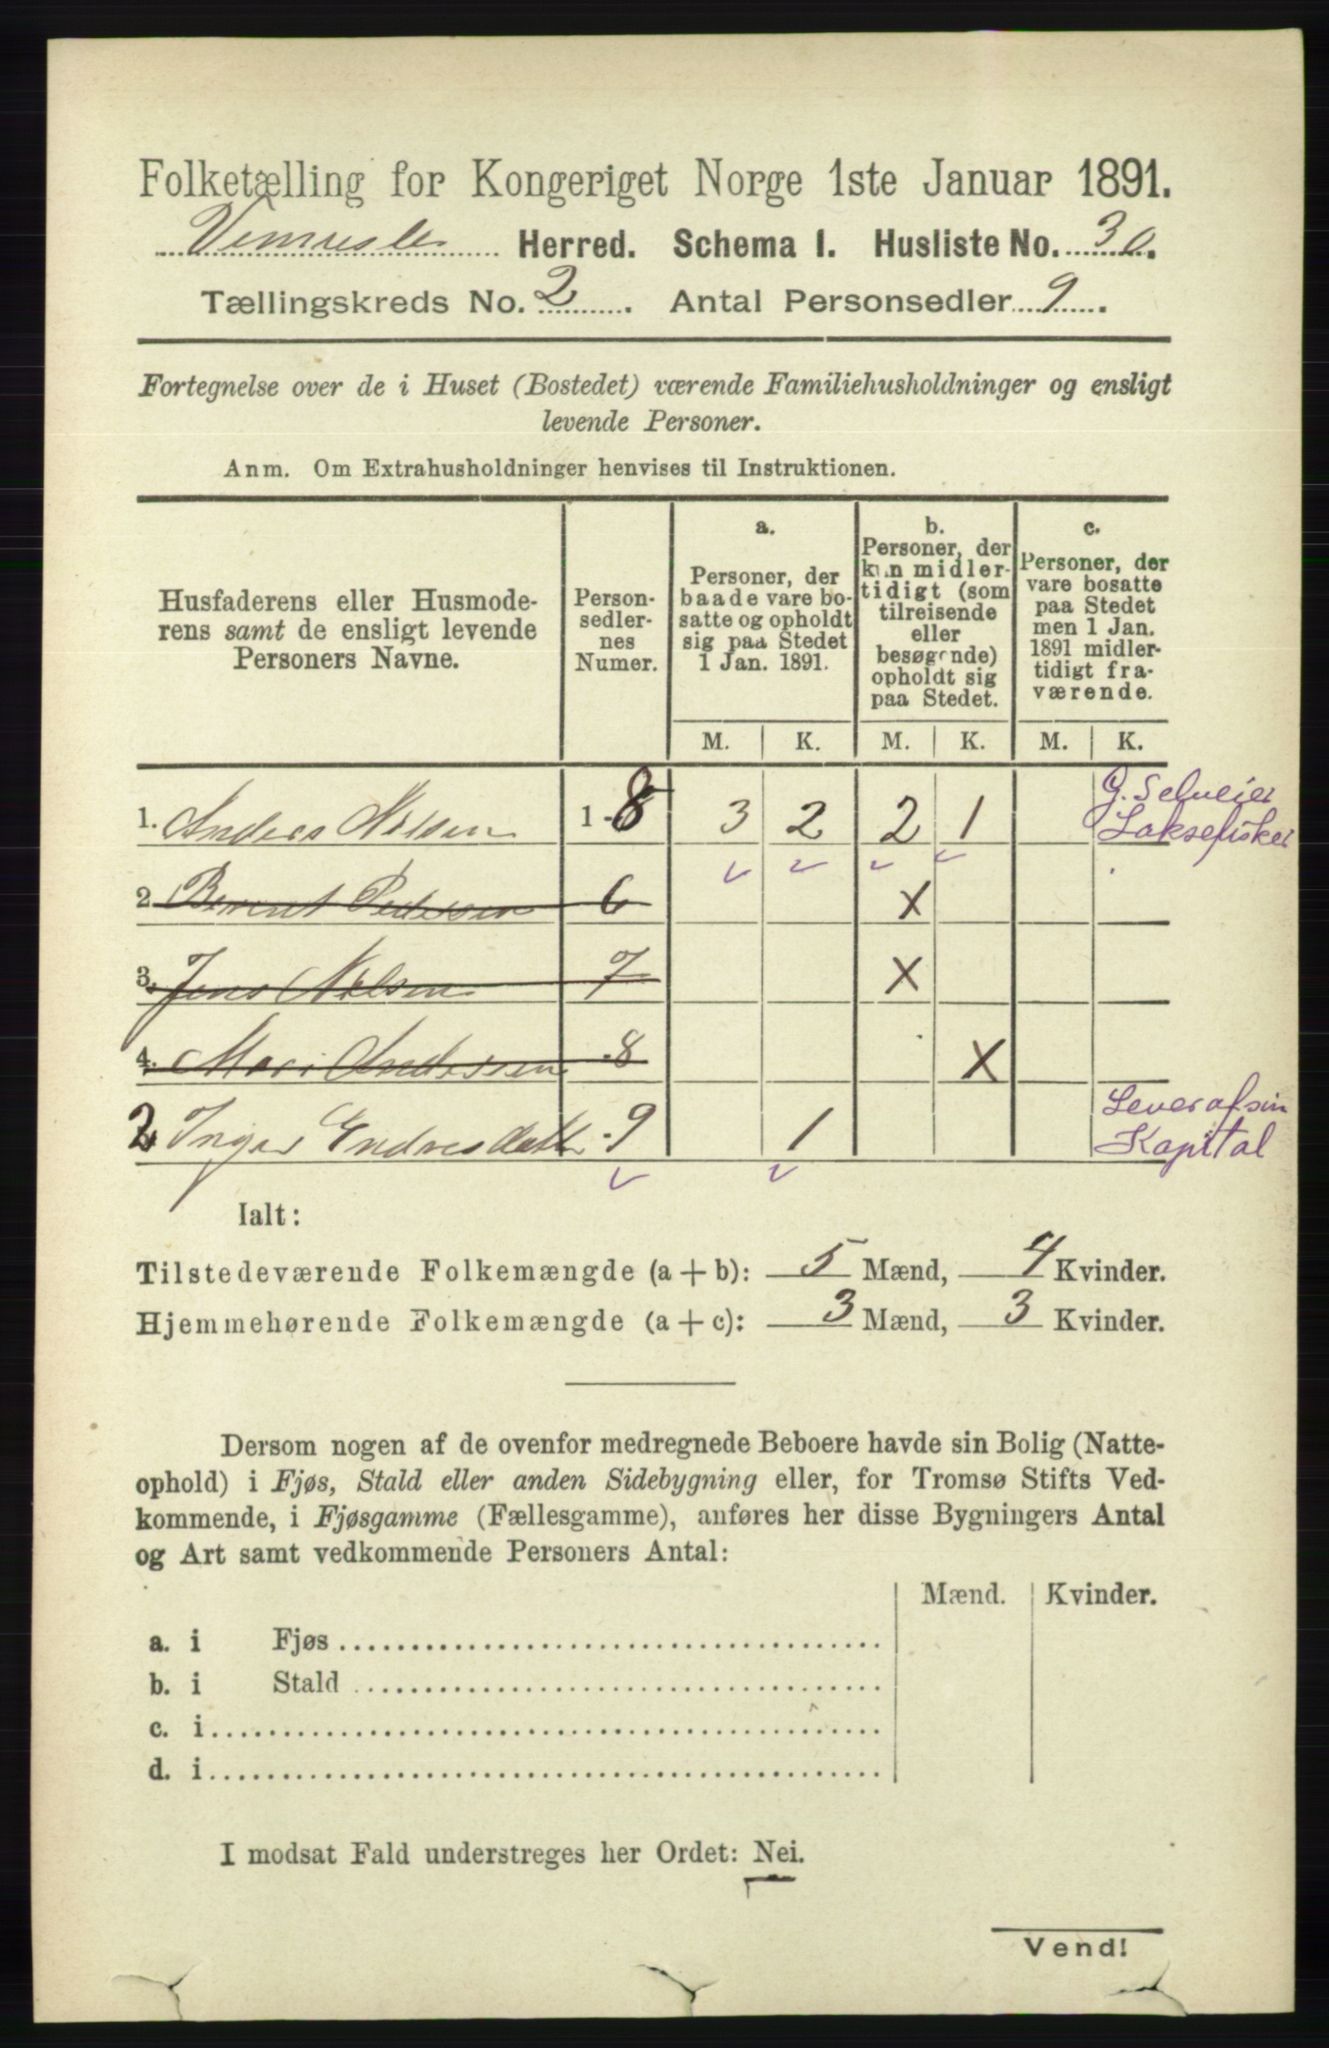 Folketælling for Kongeriget Norge 1ste Januar 1891.
Herred. Schema I. Husliste No. 30.
Tællingskreds No. 2. Antal Personsedler 9.
Fortegnelse over de i Huset (Bostedet) værende Familiehusholdninger og ensligt
levende Personer.
Anm. Om Extrahusholdninger henvises til Instruktionen.
Husfaderens eller Husmode-
rens samt de ensligt levende
Personers Navne.
Person-
sedler-
nes
Numer.
a.
Personer, der
baade vare bo-
satte og opholdt
sig paa Stedet
1 Jan. 1891.
b.
Personer, der
kun midler-
tidigt (som
tilreisende
eller
besøgende)
opholdt sig
paa Stedet.
c.
Personer, der
vare bosatte
paa Stedet
men 1 Jan.
1891 midler-
tidigt fra-
værende.
M. K. M. K. M. K.
1. Anders Nilsen 1-8 3 2 2 1 G. Selveier
Laksefisker
2. Berent Pedersen 6 X
3. Jens Nilsen 7 X
4. Mari Andersen 8 X
2 Inger Endresdatt 9 1 Lever af sin
Kapital
Ialt:
Tilstedeværende Folkemængde (a + b): 5 Mænd, 4 Kvinder.
Hjemmehørende Folkemængde (a + c): 3 Mænd, 3 Kvinder.
Dersom nogen af de ovenfor medregnede Beboere havde sin Bolig (Natte-
ophold) i Fjøs, Stald eller anden Sidebygning eller, for Tromsø Stifts Ved-
kommende, i Fjøsgamme (Fællesgamme), anføres her disse Bygningers Antal
og Art samt vedkommende Personers Antal:
Mænd. Kvinder.
a. i Fjøs
b. i Stald
c. i
d. i
I modsat Fald understreges her Ordet: Nei.
Vend!